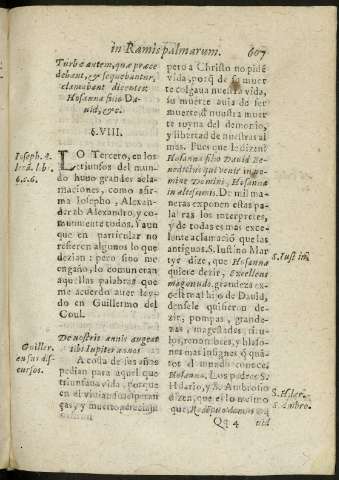 in Ramis palmarum. 607
Turbæ autem, quæ præce
debant, & sequebantur,
clamabant dicentes:
Hosanna filio Da-
uid, &c.
§. VIII.
Ioseph. 4.
lib.
c. 6.
LO Tercero, en los
triunfos del mun
do huuo grandes acla
maciones, como afir
ma Iosepho, Alexan-
der ab Alexandro, y co
munmente todos. Y aun
que en particular no
refieren algunos lo que
dezian: pero sino me
engaño, lo comun eran
aquellas palabras que
me acuerdo auer ley-
do en Guillermo del
Coul.
De nostris annis augeat
tibi Iupiter annos
Guiller.
en sus dis-
cursos.
A costa de los años
pedian para aquel que
triunfaua vida, porque
en el viuian sus esperan
ças, y muerto el
pero a Christo no pidē
vida, porq̄ de su muer
te colgaua nuestra vida,
su muerte auia de ser
muerte, a nuestra muer
te reyna del demonio,
y libertad de nuestras al
mas. Pues que le dizen?
Hosanna filio Dauid Be-
nedictus qui venit in no-
mine Domini, Hosanna
in altissimis. De mil ma
neras exponen estas pa-
labras los interpretes,
y de todas es mas exce-
lente aclamacion que las
antiguas. S. Iustino Mar
tyr dize, que Hosanna
quiere dezir, Excellens
magnitudo, grandeza ex-
celsa al hijo de Dauid,
densele quisieron de-
zir, pompas, grande-
zas, magestades, titu-
los, renombres, y blaso-
nes mas insignes q̄ quā-
tos el mundo conoce,
Hosanna. Los padres S.
Hilario, y S. Ambrosio
dizen, que es lo mismo
que, Redemptio domus
S. Iust
S. Hilar.
S. Ambro.
Qq 4 uid